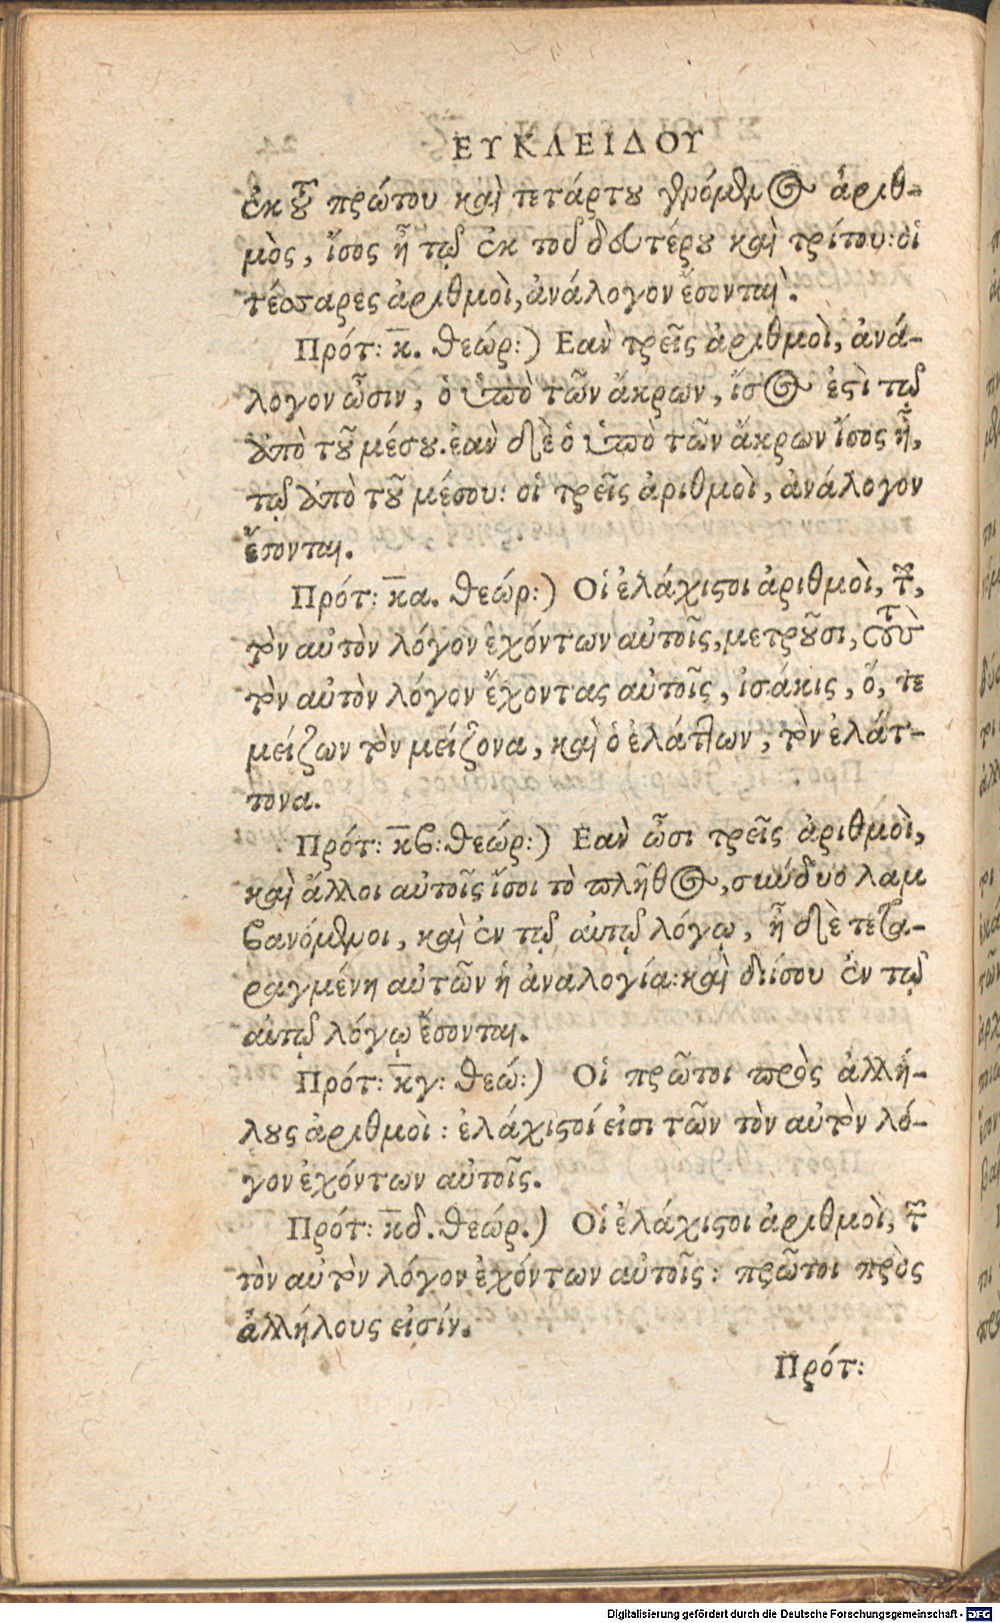 ΕΥΚΛΕΙΔΟΥ
ἐκ τοῦ πρώτου καὶ τετάρτου γενόμενος ἀριθ-
μὸς, ἴσος ᾖ τῷ ἐκ τοῦ δευτέρου καὶ τρίτου: οἱ
τέσσαρες ἀριθμοὶ, ἀνάλογον ἔσονται.
Πρότ: κ. θεώρ:) Εὰν τρεῖς ἀριθμοὶ, ἀνά-
λογον ὦσιν, ὁ ὑπὸ τῶν ἄκρων, ἴσος ἐστὶ τῷ
ἀπὸ τοῦ μέσου. ἐὰν δὲ ὁ ὑπὸ τῶν ἄκρων ἴσος ᾖ,
τῷ ἀπὸ τοῦ μέσου: οἱ τρεῖς ἀριθμοὶ, ἀνάλογον
ἔσονται.
Πρότ: κα. θεώρ:) Οἱ ἐλάχιστοι ἀριθμοὶ, τῶν,
τὸν αὐτὸν λόγον ἐχόντων αὐτοῖς, μετροῦσι, τοὺς
τὸν αὐτὸν λόγον ἔχοντας αὐτοῖς, ἰσάκις, ὅ, τε
μείζων τὸν μείζονα, καὶ ὁ ἐλάττων, τὸν ἐλάτ-
τονα.
Πρότ: κβ: θεώρ:) Εὰν ὦσι τρεῖς ἀριθμοὶ,
καὶ ἄλλοι αὐτοῖς ἴσοι τὸ πλῆθος, σύνδυο λαμ
βανόμενοι, καὶ ἐν τῷ αὐτῷ λόγῳ, ᾖ δὲ τετα-
ραγμένη αὐτῶν ἡ ἀναλογία: καὶ διίσου ἐν τῷ
αὐτῷ λόγῳ ἔσονται.
Πρότ: κγ: θεώ:) Οἱ πρῶτοι πρὸς ἀλλή-
λους ἀριθμοὶ: ἐλάχιστοί εἰσι τῶν τὸν αὐτὸν λό-
γον ἐχόντων αὐτοῖς.
Πρότ: κδ. θεώρ.) Οἱ ἐλάχιστοι ἀριθμοὶ, τῶν
τὸν αὐτὸν λόγον ἐχόντων αὐτοῖς: πρῶτοι πρὸς
ἀλλήλους εἰσίν.
Πρότ:
Digitalisierung gefördert durch die Deutsche Forschungsgemeinschaft - DFG